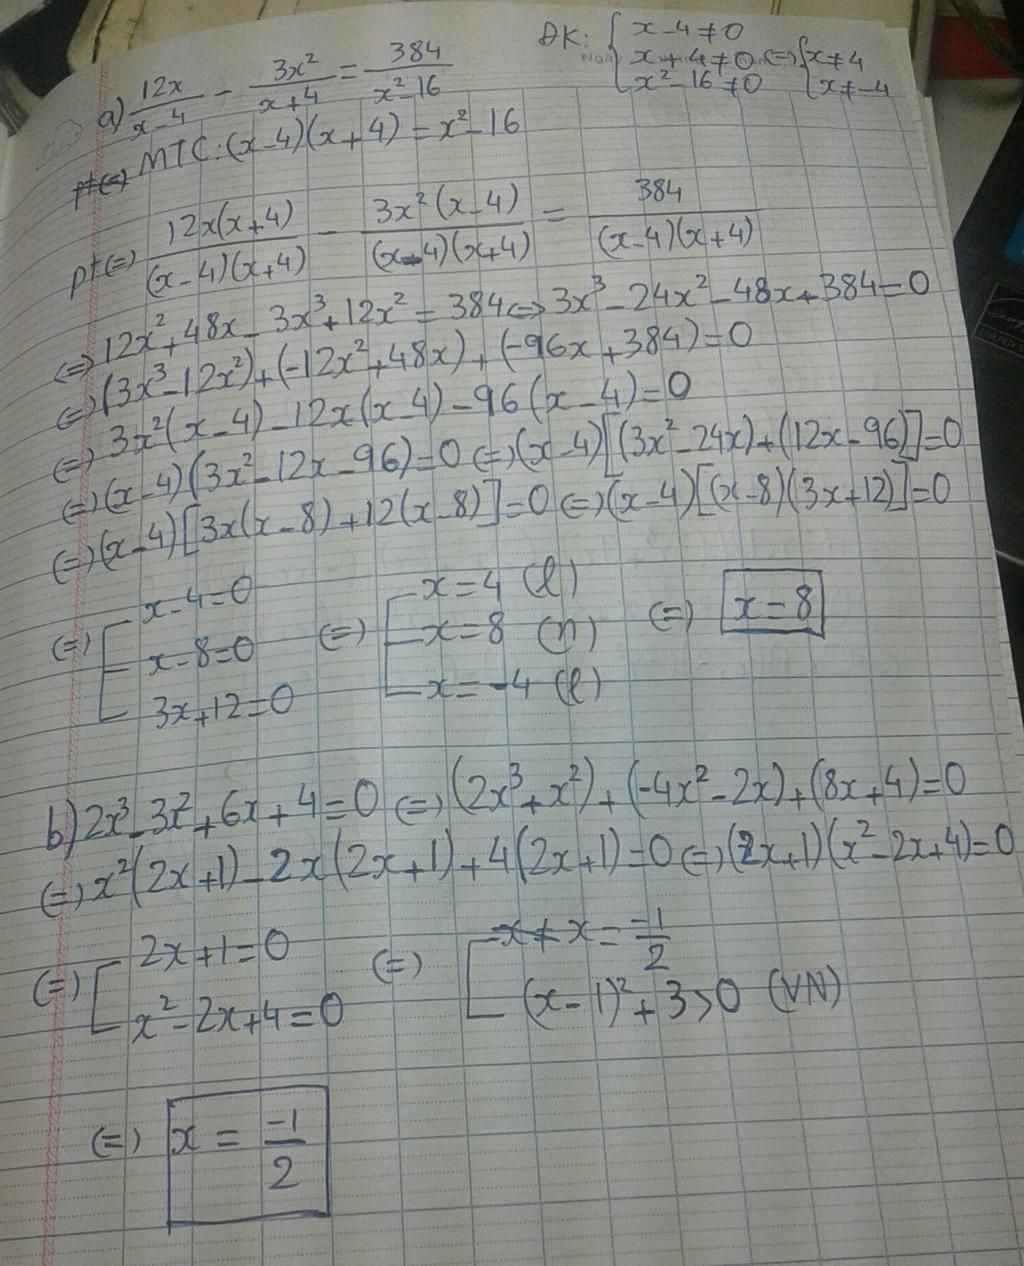 a) 12x/(x-4) - 3x²/(x+4) = 384/(x²-16) ĐK: { x-4≠0 x+4≠0 x²-16≠0 (=) { x≠4 x≠-4
pt(=) MTC: (x-4)(x+4) = x²-16
pt(=) 12x(x+4)/((x-4)(x+4)) - 3x²(x-4)/((x-4)(x+4)) = 384/((x-4)(x+4))
(=) 12x²+48x-3x³+12x² = 384 (=) 3x³-24x²-48x+384=0
(=) (3x³-12x²)+(-12x²+48x)+(-96x+384)=0
(=) 3x²(x-4)-12x(x-4)-96(x-4)=0
(=) (x-4)(3x²-12x-96)=0 (=) (x-4)[(3x²-24x)+(12x-96)]=0
(=) (x-4)[3x(x-8)+12(x-8)]=0 (=) (x-4)[(x-8)(3x+12)]=0
(=) [ x-4=0 (=) [ x=4 (l) (=) x=8
x-8=0 x=8 (n)
3x+12=0 x=-4 (l)
b) 2x³-3x²+6x+4=0 (=) (2x³+x²)+(-4x²-2x)+(8x+4)=0
(=) x²(2x+1)-2x(2x+1)+4(2x+1)=0 (=) (2x+1)(x²-2x+4)=0
(=) [ 2x+1=0 (=) [ x = -1/2
x²-2x+4=0 (x-1)²+3>0 (VN)
(=) x = -1/2